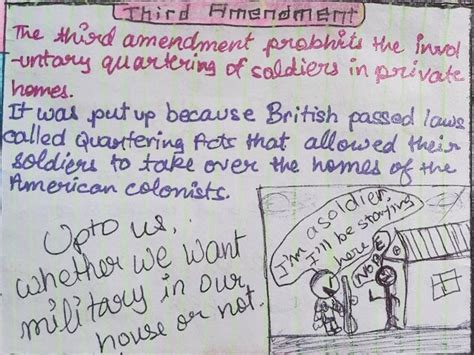 Third Amendment
The third amendment prohbits the invol
-untary quartering of soldiers in private
homes.
It was put up because British passed laws
called Quartering Acts that allowed their
soldiers to take over the homes of the
American colonists.
Upto us,
whether we want
military in our
house or not.
I'm a soldier,
I'll be staying
here
NOPE